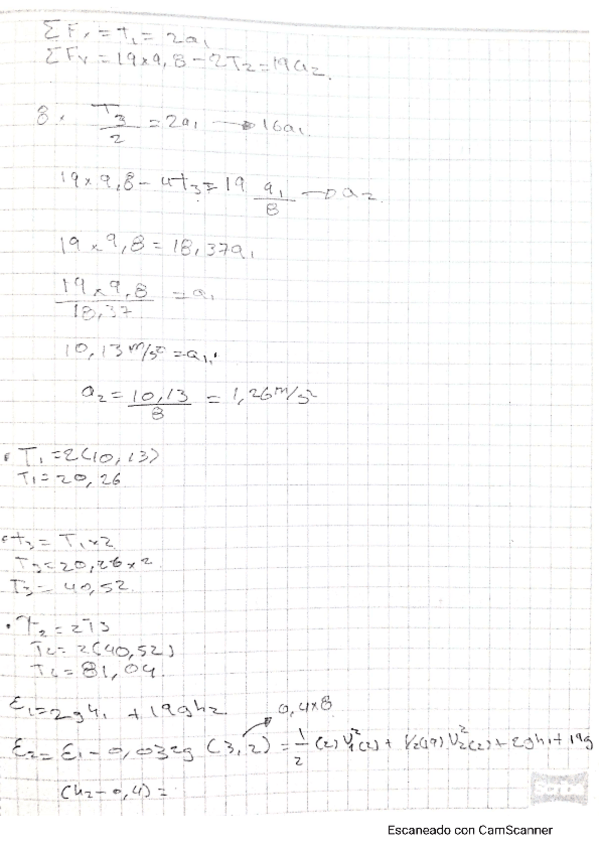 ΣFv = T1 = 2a1
ΣFv = 19×9,8 - 2T2 = 19a2.
8. T3/2 = 2a1 → 16a1.
19×9,8 - 4T3 = 19 a1/8 → a2.
19×9,8 = 18,37a1
19×9,8/18,37 = a1
10,13 m/s² = a1.
a2 = 10,13/8 = 1,26 m/s²
• T1 = 2(10,13)
T1 = 20,26
• T3 = T1×2
T3 = 20,26×2
T3 = 40,52.
• T2 = 2T3
T2 = 2(40,52)
T2 = 81,04.
E1 = 2gh1 + 19gh2 0,4×8
E2 = E1 - 0,032g (3,2) = 1/2 (2) V1²(2) + 1/2(19) V2²(2) + 2gh1 + 19g
(h2 - 0,4) =
Scribe
Escaneado con CamScanner